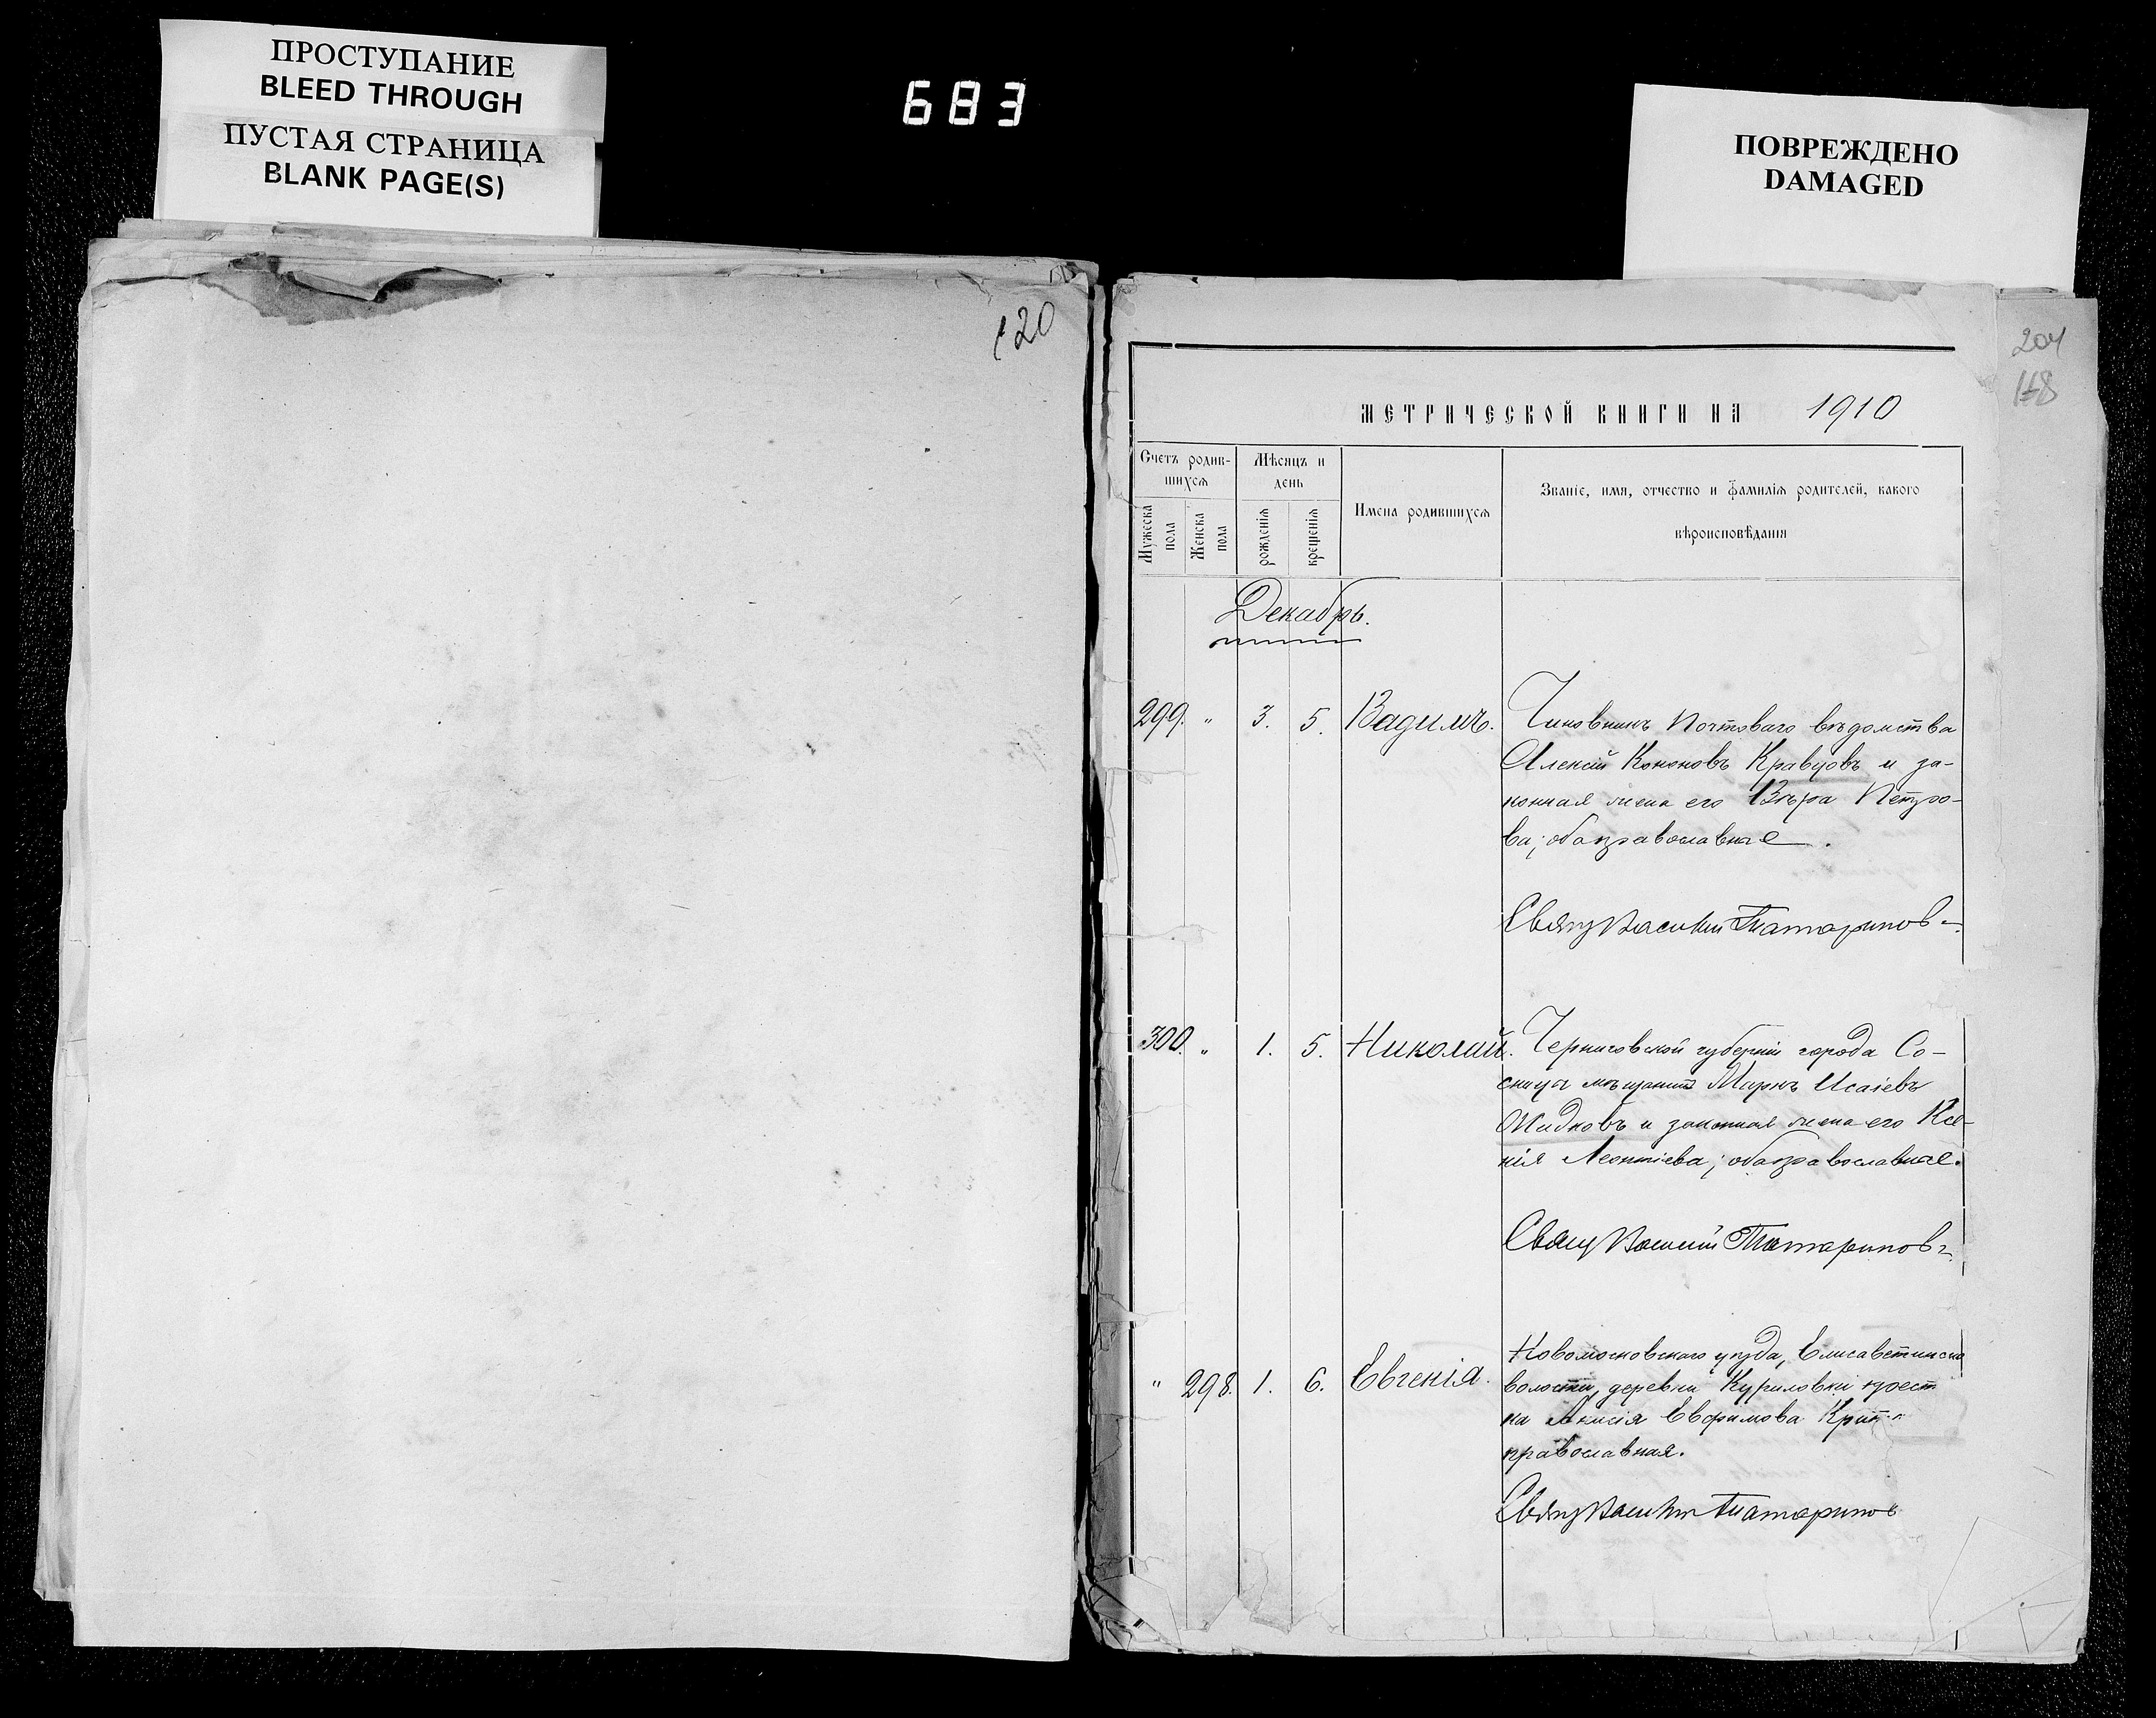 ПРОСТУПАНИЕ
BLEED THROUGH
ПУСТАЯ СТРАНИЦА
BLANK PAGE(S)
683
ПОВРЕЖДЕНО
DAMAGED
120
204
МЕТРИЧЕСКОЙ КНИГИ НА 1910
Счетъ родив-
шихся
Мужеска пола
Женска пола
Мѣсяцъ и
день
рожденія
крещенія
Имена родившихся
Званіе, имя, отчество и фамилія родителей, какого
вѣроисповѣданія
Декабрь.
299. " 3. 5. Вадимъ. Чиновникъ почтоваго вѣдомства
Алексій Кононовъ Кравцовъ и за-
конная жена его Вѣра Петро-
ва; оба православные.
Свящ Василий Татаринов
300. " 1. 5. Николай. Черниговской губерніи города Со-
сницы мѣщанинъ Маркъ Исаіевъ
Жидковъ и законная жена его Ксе-
нія Леонтіева; оба православные.
Свящ Василий Татаринов
" 298. 1. 6. Евгенія. Новомосковскаго уѣзда, Елисаветинско
волости, деревни Куриловки крест
на Евфимова
православная.
Свящ Василий Татаринов